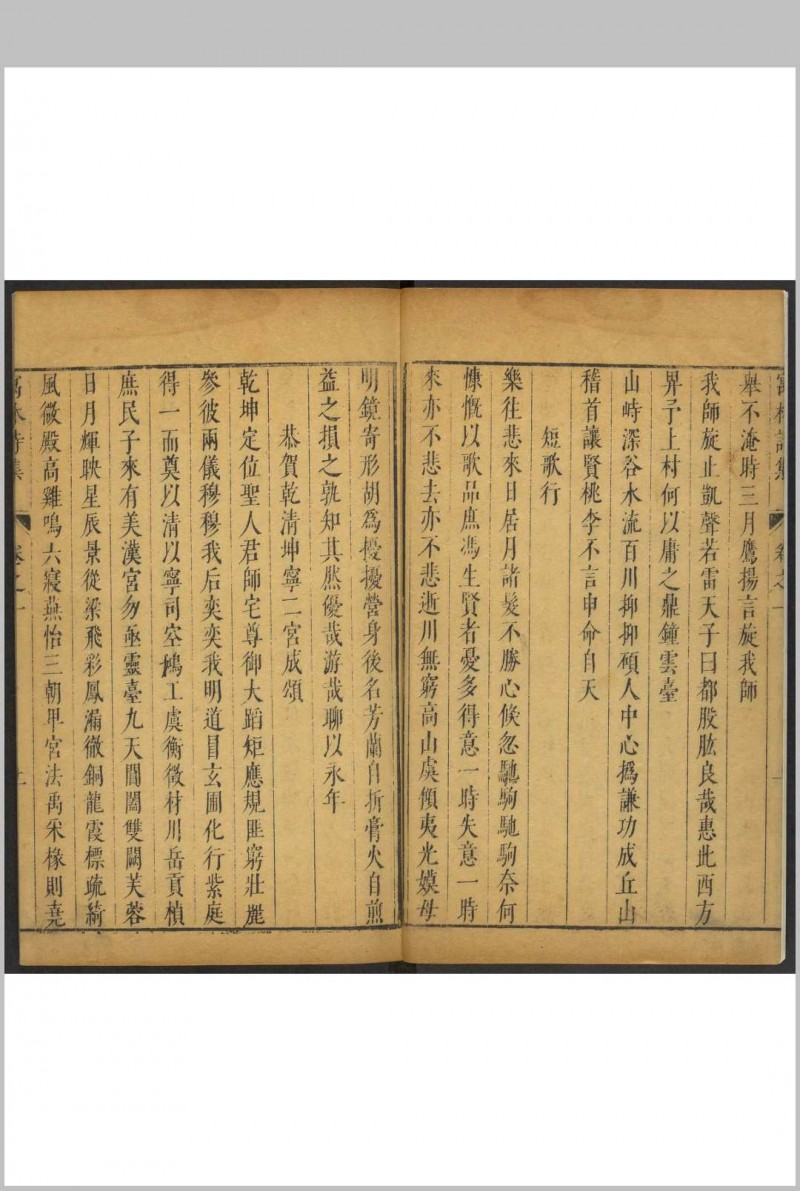 舉不淹時三月鷹揚言旋我師
我師旋止凱聲若雷天子曰都股肱良哉惠此西方
畀予上村何以庸之鼎鐘雲臺
山峙深谷水流百川抑抑碩人中心撝謙功成丘山
稽首讓賢桃李不言申命自天
短歌行
樂往悲來日居月諸髮不勝心倏忽馳駒馳駒奈何
慷慨以歌品庶馮生賢者憂多得意一時失意一時
來亦不悲去亦不悲逝川無窮高山虞傾夷光嫫母
明鏡寄形胡爲擾擾營身後名芳蘭自折膏火自煎
益之損之孰知其然優哉游哉聊以永年
恭賀乾清坤寧二宮成頌
乾坤定位聖人君師宅尊御大蹈矩應規匪窮壯麗
參彼兩儀穆穆我后奕奕我明道冒玄圃化行紫庭
得一而奠以清以寧司空鳩工虞衡徵材川岳貢楨
庶民子來有美漢宮勿亟靈臺九天閶闔雙闕芙蓉
日月輝映星辰景從梁飛彩鳳漏徹銅龍霞標疏綺
風微殿高雞鳴六寢燕怡三朝卑宮法禹采椽則堯
卷之一